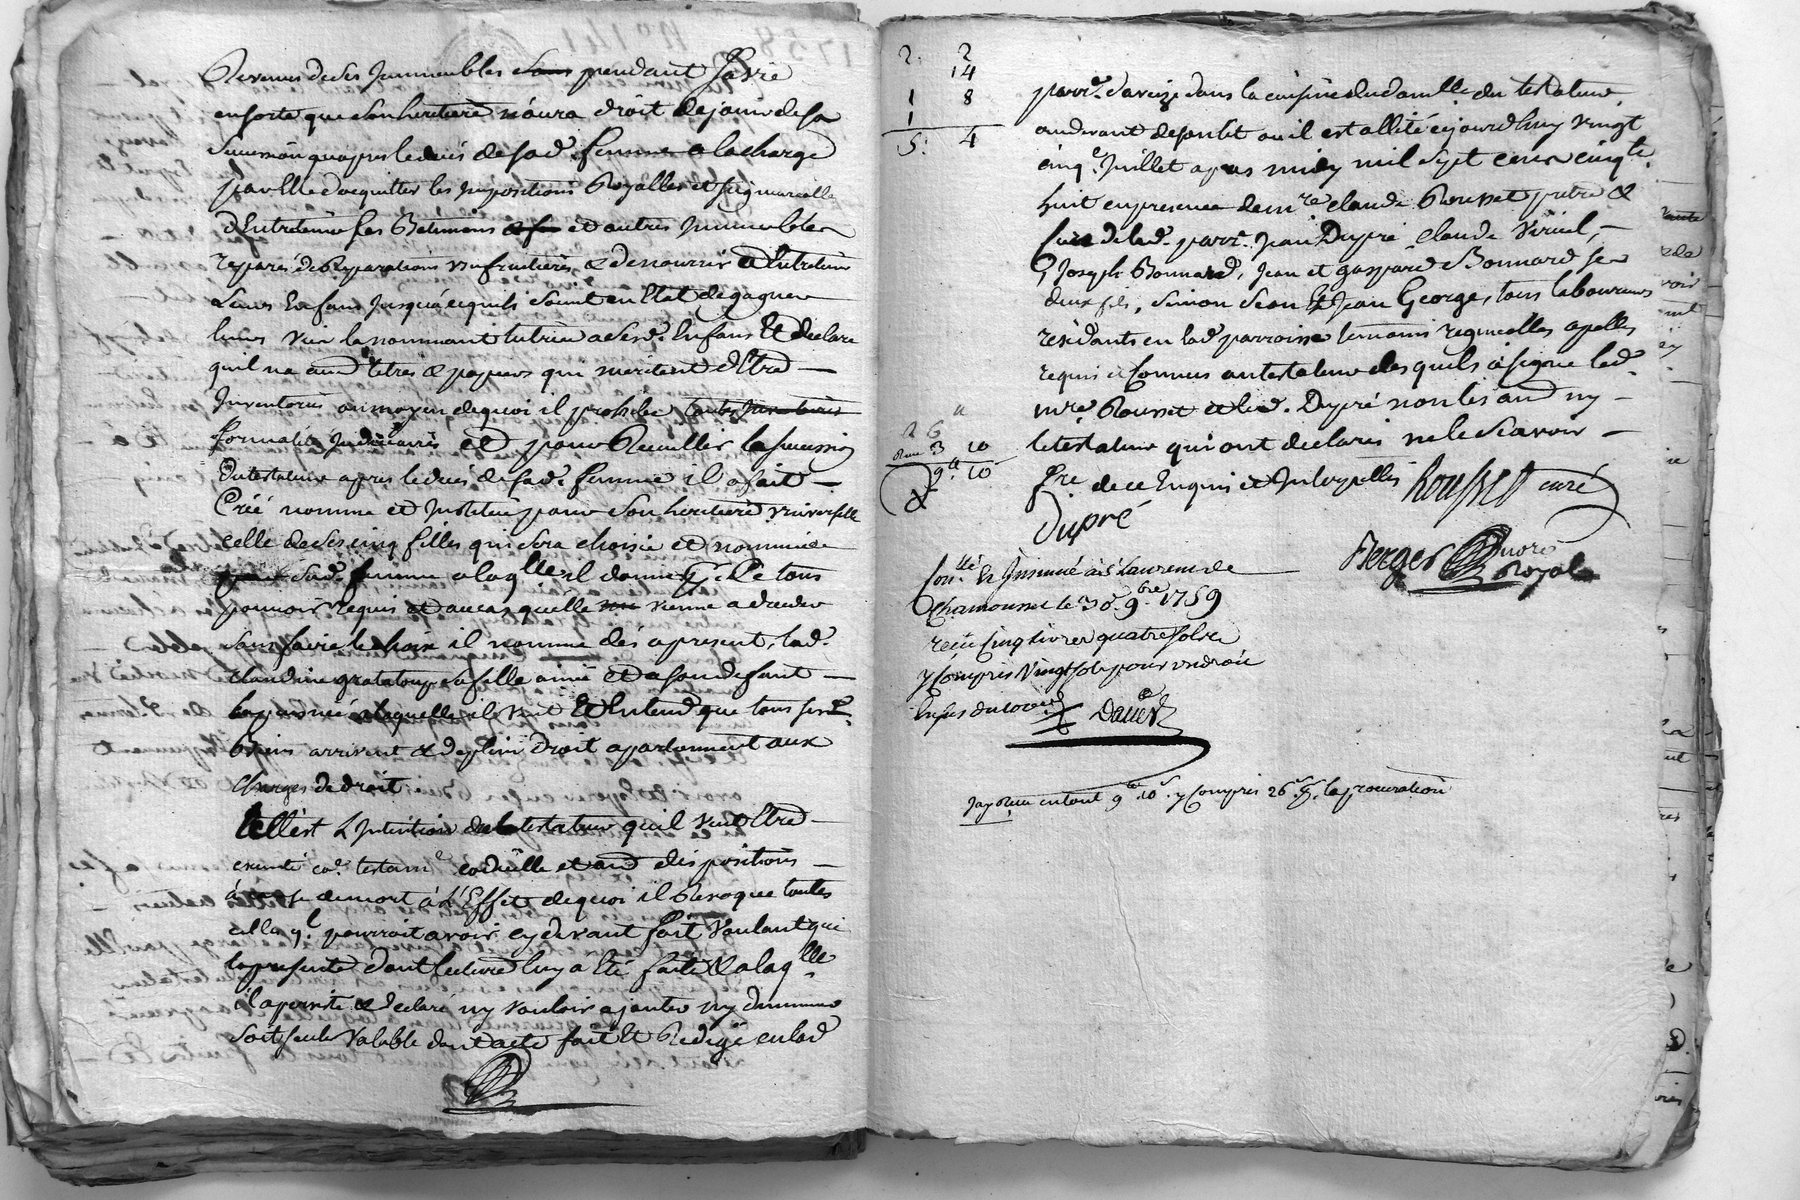 Revenus de ses Jmmeubles sous pendant sa vie
ensorte que son heritiere n'aura droit de jouir de sa
succession qu'apres le deces de sad. femme a la charge
par elle d'acquitter les impositions Royalles et seigneurialles
d'Entretenir ses Batimens et autres Jmmeubles
reparés de Reparations usufruitieres & de nourrir et Entretenir
Leurs Enfans jusqu'a ce quils soient en Etat de gagner
leurs vies la nommant tutrice a sesd. Enfans Et declare
quil na aucuns titres & papiers qui meritent d'Etre
Jnventoriés au moyen de quoi il prohibe toutes
formalités judiciaires et pour Recueillir la succession
du testateur apres le deces de sad. femme il a fait
Créé nommé et Jnstitué pour son heritiere universelle
celle de ses cinq filles qui sera choisie et nommée
par sad. femme a laqlle il donne pr. Ce tous
pouvoirs Requis et au cas qu'elle vienne a deceder
sans faire le choix il nomme dés apresent lad.
Claudine grataloup sa fille ainée et a son defaut
la puisnée a laquelle il veut Et Entend que tous ses
Biens arrivent & de plein Droit apartiennent aux
Charges de droit.
Telle est L'Jntention dud. testateur quil veut Etre
executé co. testamt. codicille et aud. dispositions
a cause de mort à L'Effet de quoi il Revoque toutes
celles ql. pourroit avoir cy devant fait voulant que
la presente dont lecture luy a Eté faite & a laqlle
il a persisté & declaré ny vouloir ajouter ny diminuer
soit seule valable dont acte fait Et Redigé en lad.
2. 2
14
1 8
1
5. 4
parr. d'aveize dans la cuisine du domlle. du testateur
au devant de son lit ou il est allité cejourdhuy vingt
cinq. Juillet apres midy mil sept cens cinqte.
huit en presence de mre claude Rousset pretre &
curé de lad. parr. Jean Dupré, claude Viriel,
Joseph Bonnard, Jean et gaspard Bonnard ses
deux fils, Simon Jean Et Jean George, tous laboureurs
residants en lad. parroisse temoins requis et apellés
requis & connus au testateur desquels a signé led.
mre. Rousset et led. Dupré non les aud. ny
le testateur qui ont declarés ne le scavoir
pre. de ce Enquis et Jnterpellés Rousset curé
Dupré
26
3 10
9 tt 10
Berger nore Royal
Conllé Et Jnsinué à St Laurens de
Chamousset le 30. 9bre 1759
reçu Cinq livres quatre sols
y Compris Vingt sols pour un droit
Daver
J'ay Reçu en tout 9 tt 10 s. y Compris 26 s. pr. la procuration